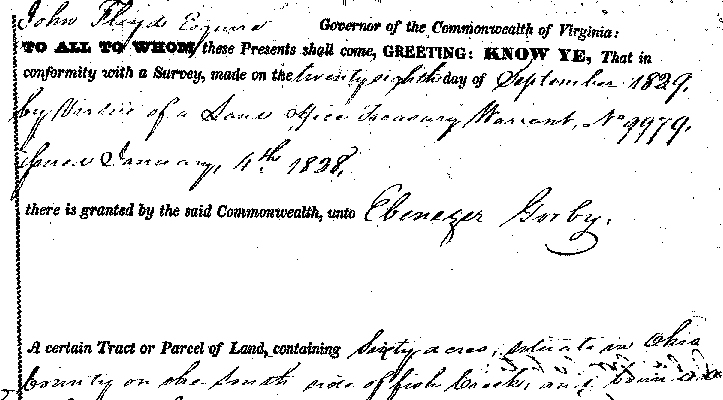 John Floyd Esquire Governor of the Commonwealth of Virginia:
TO ALL TO WHOM these Presents shall come, GREETING: KNOW YE, That in
conformity with a Survey, made on the twenty eighth day of September 1829,
by Virtue of a Land Office Treasury Warrant, No 9979.
January, 4th 1828,
there is granted by the said Commonwealth, unto Ebenezer Gorby.
A certain Tract or Parcel of Land, containing Sixty acres, situate in Ohio
County on the South side of fish Creek, and bounded